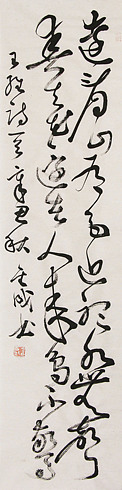 遠看山有色近聽水無聲
春去花還在人来鳥不驚
王維詩 辛丑秋 书